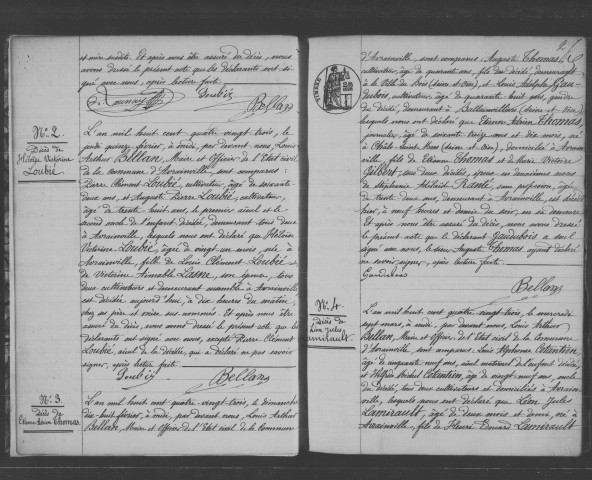 et mère susdits. Et après nous être assuré du décès, nous
avons dressé le présent acte que les déclarants ont si-
gné avec nous, après lecture faite.
Loubié
Bellan
N° 2.
Décès de
Héloïse Victorine
Loubié.
L'an mil huit cent quatre vingt trois, le
jeudi quinze février, à midi, par devant nous, Louis
Arthur Bellan, Maire et Officier de l'Etat civil de
la commune d'Avrainville, sont comparus:
Pierre Clément Loubié, cultivateur, âgé de soixante
deux ans, et Auguste Pierre Loubié, cultivateur,
âgé de trente huit ans, le premier aïeul et le
second oncle de l'enfant décédé, demeurant tous deux
à Avrainville, lesquels nous ont déclaré que Héloïse
Victorine Loubié, âgée de vingt un mois, née à
Avrainville, fille de Louis Clément Loubié et
de Victorine Aimable Lasne, son épouse, tous
deux cultivateurs et demeurant ensemble à Avrainville
est décédée aujourd'hui, à dix heures du matin,
chez ses père et mère sus nommés. Et après nous être
assuré du décès, nous avons dressé le présent acte que les
déclarants ont signé avec nous, excepté Pierre Clément
Loubié, aïeul de la décédée, qui a déclaré ne pas savoir
signer, après lecture faite.
Loubié
Bellan
N° 3.
Décès de
Etienne Adrien Thomas.
L'an mil huit cent quatre vingt trois, le dimanche
dix huit février, à midi, par devant nous, Louis Arthur
Bellan, Maire et Officier de l'Etat civil de la Commune
d'Avrainville, sont comparus: Auguste Thomas,
cultivateur, âgé de quarante ans, fils du décédé, demeurant
à la Ville du Bois (Seine et Oise), et Louis Adolphe Gau-
dubois, cultivateur, âgé de quarante huit ans, gendre
du décédé, demeurant à (Seine et Oise)
lesquels nous ont déclaré que Etienne Adrien Thomas,
journalier, âgé de soixante treize ans et dix mois, né
à (Seine et Oise), domicilié à Avrain-
ville, fils de Etienne Thomas et de Marie Victoire
Gilbert, tous deux décédés, époux en deuxièmes noces
de Stéphanie Ranté, sans profession, âgée
de trente deux ans, demeurant à Avrainville, est décédé
hier, à neuf heures et demie du soir, en sa demeure.
Et après nous être assuré du décès, nous avons dressé
le présent acte que le déclarant Gaudubois a seul
signé avec nous, le sieur Auguste Thomas ayant déclaré
ne savoir signer, après lecture faite.
Gaudubois
Bellan
N° 4.
Décès de
Léon Jules
Lamirault.
L'an mil huit cent quatre vingt trois, le mercredi
sept mars, à midi, par devant nous, Louis Arthur
Bellan, Maire et Officier de l'Etat civil de la Commune
d'Avrainville, sont comparus: Louis Alphonse Cotantien,
âgé de cinquante neuf ans, aïeul maternel de l'enfant décédé,
et Michel Cotantien, âgé de vingt neuf ans, oncle
du décédé, tous deux cultivateurs et domiciliés à Avrain-
ville, lesquels nous ont déclaré que Léon Jules
Lamirault, âgé de deux mois et demi, né à
Avrainville, fils de Fleuri Edouard Lamirault